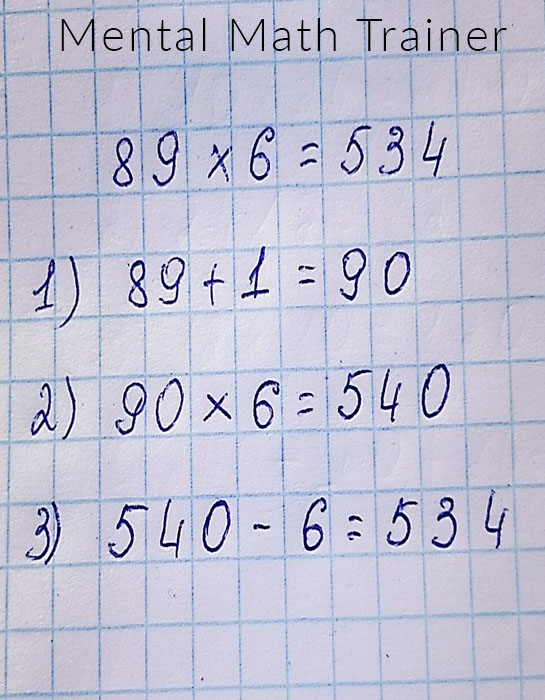 Mental Math Trainer
89 × 6 = 534
1) 89 + 1 = 90
2) 90 × 6 = 540
3) 540 - 6 = 534